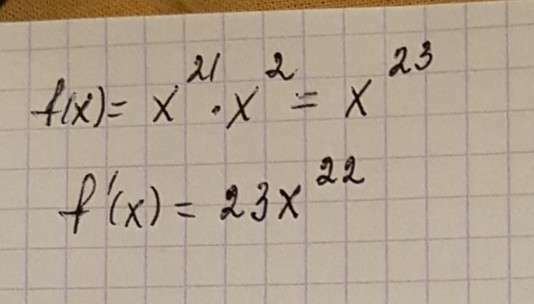 f(x) = x²¹ · x² = x²³
f'(x) = 23x²²